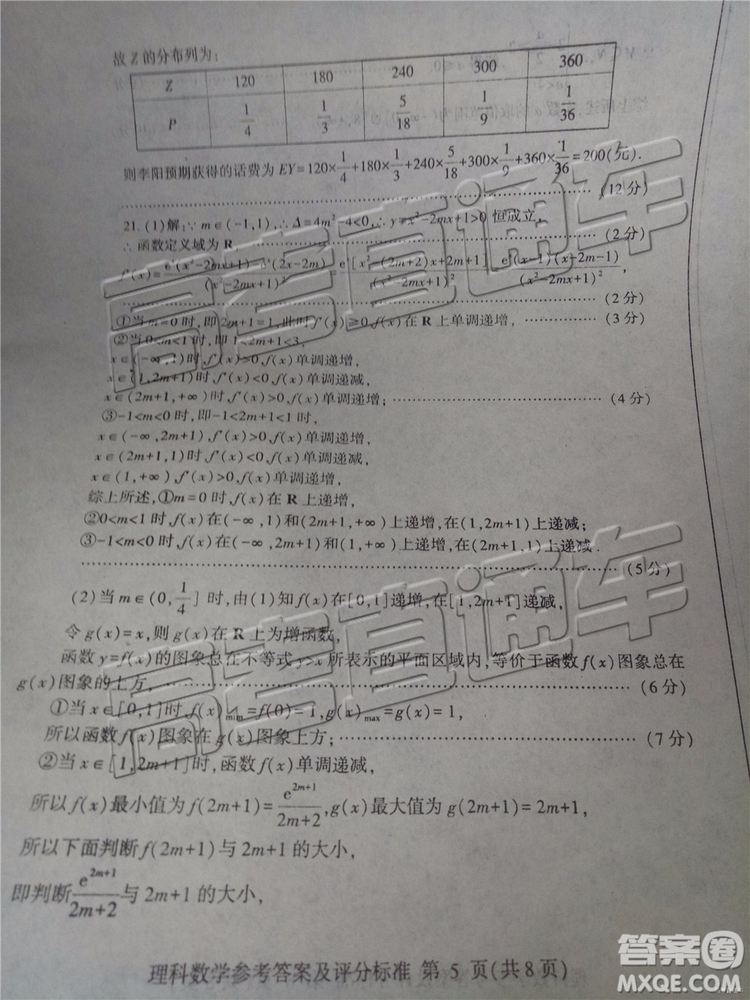 故Z的分布列为:
Z 120 180 240 300 360
P 1/4 1/3 5/18 1/9 1/36
则李阳预期获得的话费为 EY=120×1/4+180×1/3+240×5/18+300×1/9+360×1/36=200(元).
(12分)
21.(1)解:∵m∈(-1,1),∴Δ=4m²-4<0,∴y=x²-2mx+1>0 恒成立,
∴函数定义域为 R. (2分)
f'(x)=e^x(x²-2mx+1)-e^x(2x-2m)/(x²-2mx+1)²=e^x[x²-(2m+2)x+2m+1]/(x²-2mx+1)²=e^x(x-1)(x-2m-1)/(x²-2mx+1)²,
(2分)
①当m=0时,即2m+1=1,此时f'(x)≥0,f(x)在 R 上单调递增, (3分)
②当0<m<1时,即1<2m+1<3,
x∈(-∞,1)时,f'(x)>0,f(x)单调递增,
x∈(1,2m+1)时,f'(x)<0,f(x)单调递减,
x∈(2m+1,+∞)时,f'(x)>0,f(x)单调递增; (4分)
③-1<m<0时,即-1<2m+1<1时,
x∈(-∞,2m+1),f'(x)>0,f(x)单调递增,
x∈(2m+1,1)时,f'(x)<0,f(x)单调递减,
x∈(1,+∞),f'(x)>0,f(x)单调递增,
综上所述,①m=0时,f(x)在 R 上递增,
②0<m<1时,f(x)在(-∞,1)和(2m+1,+∞)上递增,在(1,2m+1)上递减;
③-1<m<0时,f(x)在(-∞,2m+1)和(1,+∞)上递增,在(2m+1,1)上递减.
(5分)
(2)当m∈(0,1/4]时,由(1)知f(x)在[0,1]递增,在[1,2m+1]递减,
令g(x)=x,则g(x)在 R 上为增函数,
函数y=f(x)的图象总在不等式y>x所表示的平面区域内,等价于函数f(x)图象总在
g(x)图象的上方, (6分)
①当x∈[0,1]时,f(x)min=f(0)=1,g(x)max=g(x)=1,
所以函数f(x)图象在g(x)图象上方; (7分)
②当x∈[1,2m+1]时,函数f(x)单调递减,
所以f(x)最小值为f(2m+1)=e^(2m+1)/(2m+2),g(x)最大值为g(2m+1)=2m+1,
所以下面判断f(2m+1)与2m+1的大小,
即判断e^(2m+1)/(2m+2)与2m+1的大小,
理科数学参考答案及评分标准 第5页(共8页)
高考直通车
高考直通车
答案圈
MXQE.COM